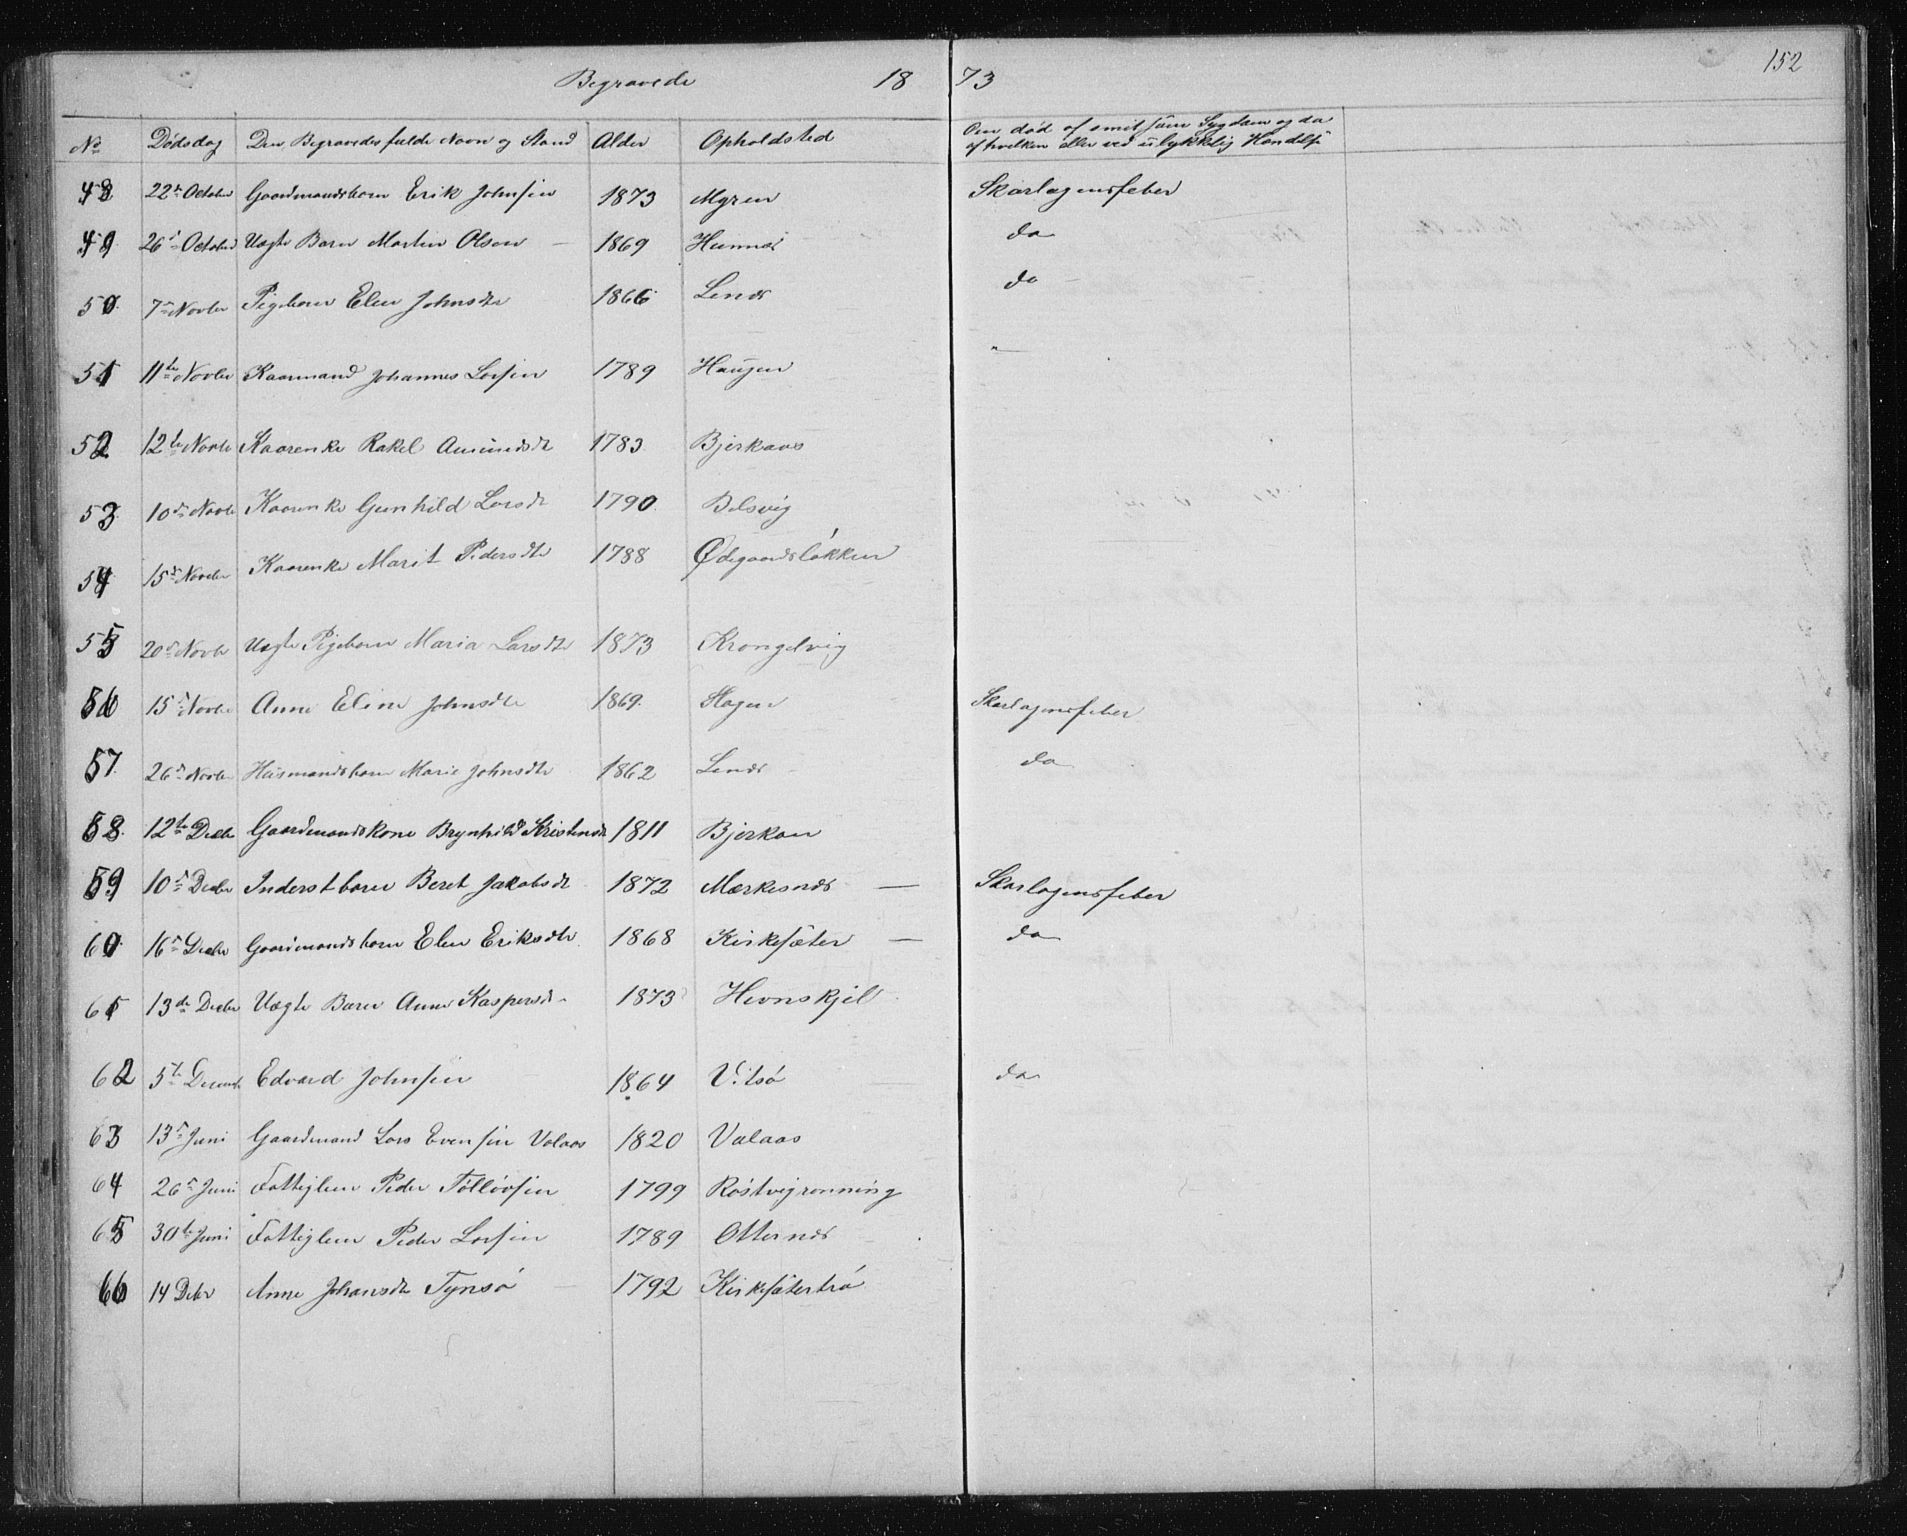 152
Begravede 18 73
No Dødsdag Den Begravedes fulde Navn og Stand Alder Opholdsted Om død af smitsom Sygdom og da af hvilken eller ved ulykkelig Hændelse
48 22de October Gaardmandsbarn Erik Johnsen 1873 Myren Skarlagensfeber
49 26de October Uægte Barn Martin Olsen – 1869 Hunnes do
50. 7de Novber Pigebarn Elen Johnsdtr 1866 Lenes do –
51 11te Novber Kaarmand Johannes Larsen 1789 Haugen "
52 12te Novbr Kaarenke Rakel Amundsdtr 1783 Bjerkaas
53. 10de Novbr Kaarenke Gunhild Larsdtr 1790. Belsvig
54 15de Novber Kaarenke Marit Pedersdtr 1788 Ødegaardsløkken
55 20de Novbr Uægte Pigebarn Maria Larsdtr 1873 Krongelvig
56 15de Novbr Anne Eline Johnsdtr 1869. Hagen Skarlagensfeber
57. 26de Novbr Husmandsbarn Marie Johnsdtr 1862 Lenes do
58. 12te Decbr Gaardmandskone Brynhild Kristensdtr 1811 Bjerkan
59 10de Decbr Inderstbarn Beret Jakobsdtr 1872 Mærkesnes – Skarlagensfeber
60. 16de Decbr Gaardmandsbarn Elen Eriksdtr. 1868 Kirkesæter – do
61 13de Decbr Uægte Barn Anne Kaspersdtr 1873 Hevnskjel
62 5te Decembr Edvard Johnsen 1864 Vitsø do
63 13de Juni Gaardmand Lars Evensen Valaas 1820 Valaas
64 26de Juni Fattiglem Peder Tølløvsen 1799 Røstvigrønning
65 30te Juni Fattiglem Peder Larsen 1789 Otternes
66 14 Decbr Anne Johansdtr Tynsø – 1792 Kirkesætertrø